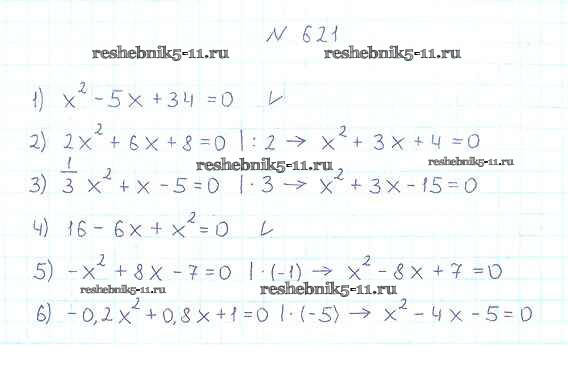 № 621
reshebnik5-11.ru reshebnik5-11.ru
1) x² - 5x + 34 = 0 ✓
2) 2x² + 6x + 8 = 0 | : 2 → x² + 3x + 4 = 0
reshebnik5-11.ru reshebnik5-11.ru
3) 1/3 x² + x - 5 = 0 | · 3 → x² + 3x - 15 = 0
4) 16 - 6x + x² = 0 ✓
5) -x² + 8x - 7 = 0 | · (-1) → x² - 8x + 7 = 0
reshebnik5-11.ru reshebnik5-11.ru
6) -0,2x² + 0,8x + 1 = 0 | · (-5) → x² - 4x - 5 = 0